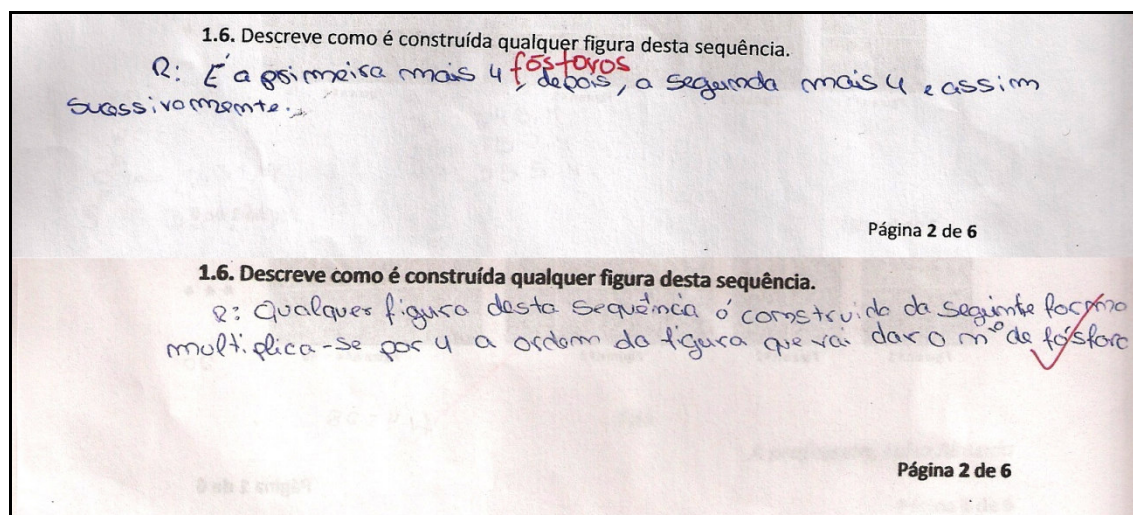 1.6. Descreve como é construída qualquer figura desta sequência.
R: É a primeira mais 4 fósforos, depois, a segunda mais 4 e assim
sucessivamente.
Página 2 de 6
1.6. Descreve como é construída qualquer figura desta sequência.
R: Qualquer figura desta sequência é construida da seguinte forma
multiplica-se por 4 a ordem da figura que vai dar o nº de fósforo
Página 2 de 6